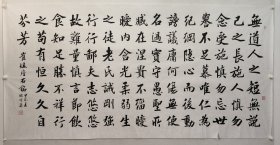 無道人之短無說
己之長施人慎勿
念受施慎勿忘世
譽不足慕唯仁為
紀綱隱心而後動
謗議庸何傷無使
名過實守愚聖所
臧在涅貴不淄曖
曖內含光柔弱生
之徒老氏誡剛強
行行鄙夫志悠悠
故難量慎言節飲
食知足勝不祥行
之苟有恒久久自
芬芳 崔瑗座右銘